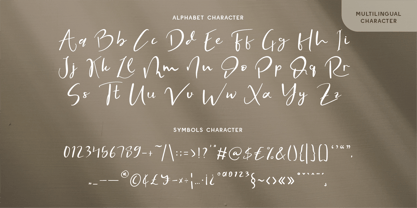 MULTILINGUAL
CHARACTER
ALPHABET CHARACTER
Aa Bb Cc Dd Ee Ff Gg Hh Ii
Jj Kk Ll Mm Nn Oo Pp Qq Rr
Ss Tt Uu Vv Ww Xx Yy Zz
SYMBOLS CHARACTER
0123456789-+~/\:;=>!?'"#@$£%&()[|]{}